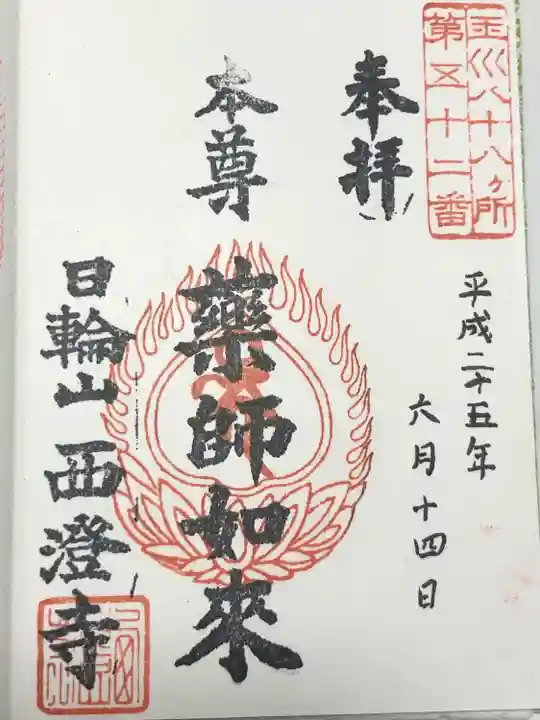 玉川八十八ヶ所
第五十二番
奉拝
平成二十五年
六月十四日
本尊
藥師如來
日輪山西澄寺